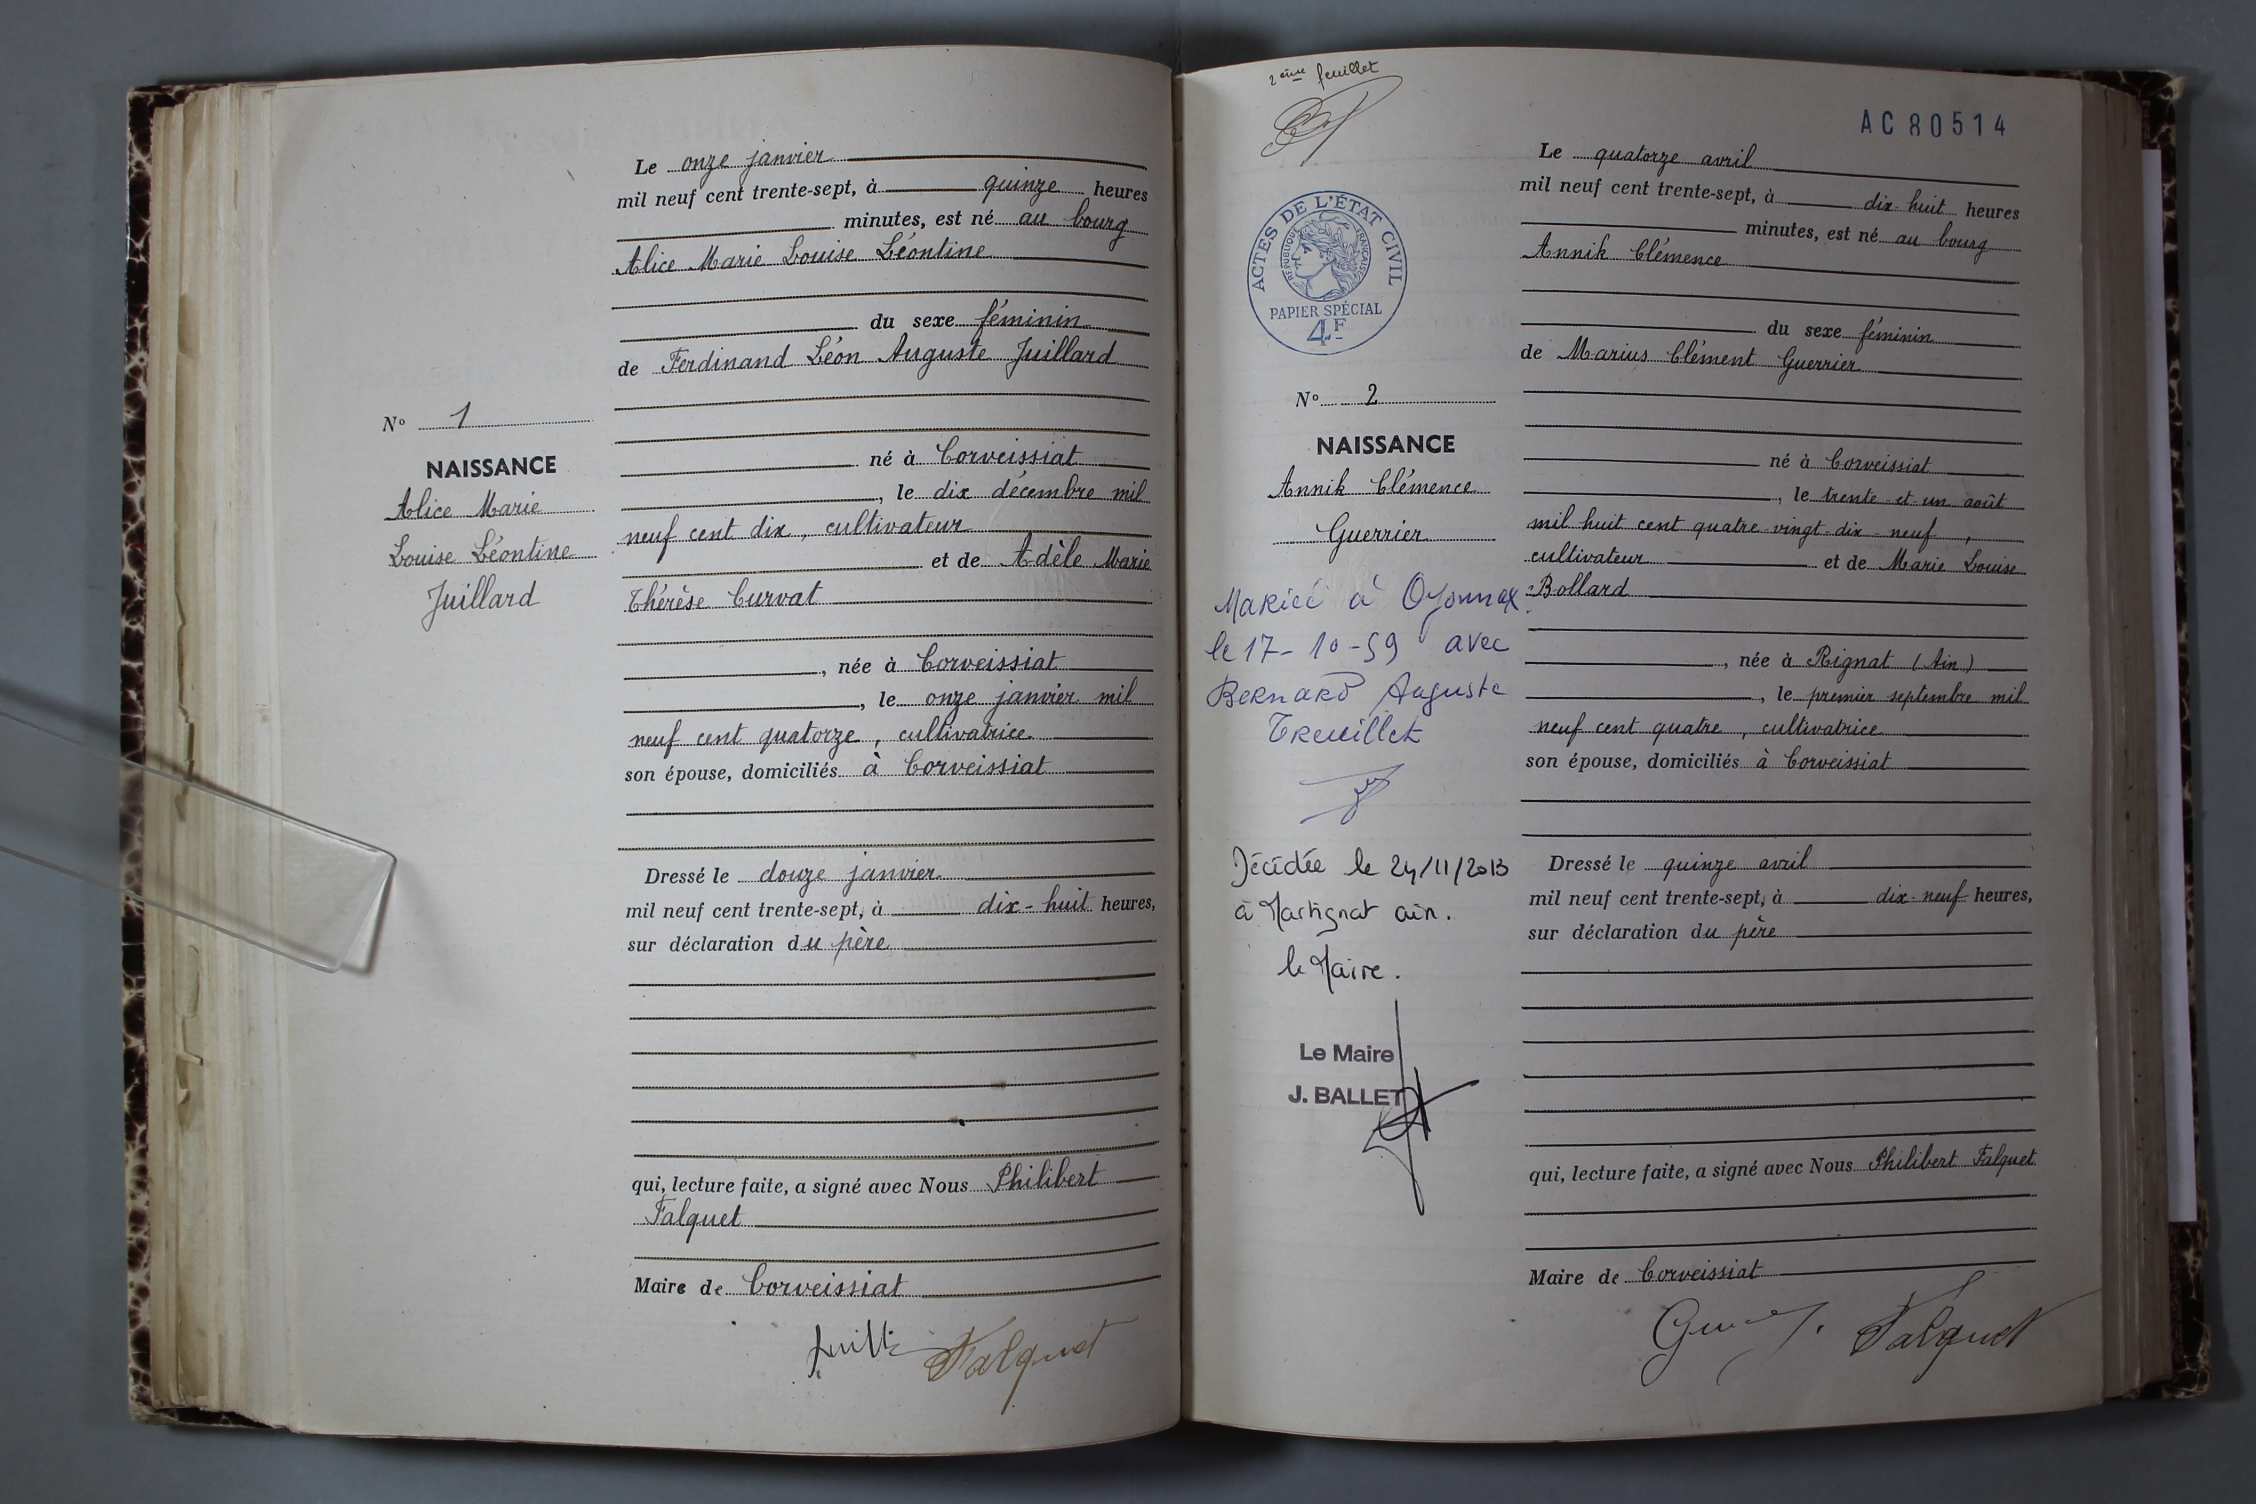 Le onze janvier
mil neuf cent trente-sept, à quinze heures
minutes, est né au bourg
Alice Marie Louise Léontine
du sexe féminin
de Ferdinand Léon Auguste Juillard
né à Corveissiat
, le dix décembre mil
neuf cent dix, cultivateur
et de Adèle Marie
Thérèse Curvat
, née à Corveissiat
, le onze janvier mil
neuf cent quatorze, cultivatrice
son épouse, domiciliés à Corveissiat
Dressé le douze janvier
mil neuf cent trente-sept, à dix-huit heures,
sur déclaration du père
qui, lecture faite, a signé avec Nous Philibert
Falquet
Maire de Corveissiat
Falquet
No 1
NAISSANCE
Alice Marie
Louise Léontine
Juillard
2ème feuillet
ACTES DE L'ÉTAT CIVIL
RÉPUBLIQUE FRANÇAISE
PAPIER SPÉCIAL
4F
No 2
NAISSANCE
Annik Clémence
Guerrier
Mariée à Oyonnax
le 17-10-59 avec
Bernard Auguste
Treuillet
Décédée le 24/11/2013
à Martignat ain.
le Maire.
Le Maire
J. BALLET
AC 80514
Le quatorze avril
mil neuf cent trente-sept, à dix-huit heures
minutes, est né au bourg
Annik Clémence
du sexe féminin
de Marius Clément Guerrier
né à Corveissiat
, le trente-et-un août
mil huit cent quatre-vingt-dix-neuf,
cultivateur et de Marie Louise
Bollard
, née à Rignat (Ain)
, le premier septembre mil
neuf cent quatre, cultivatrice
son épouse, domiciliés à Corveissiat
Dressé le quinze avril
mil neuf cent trente-sept, à dix-neuf heures,
sur déclaration du père
qui, lecture faite, a signé avec Nous Philibert Falquet
Maire de Corveissiat
Falquet